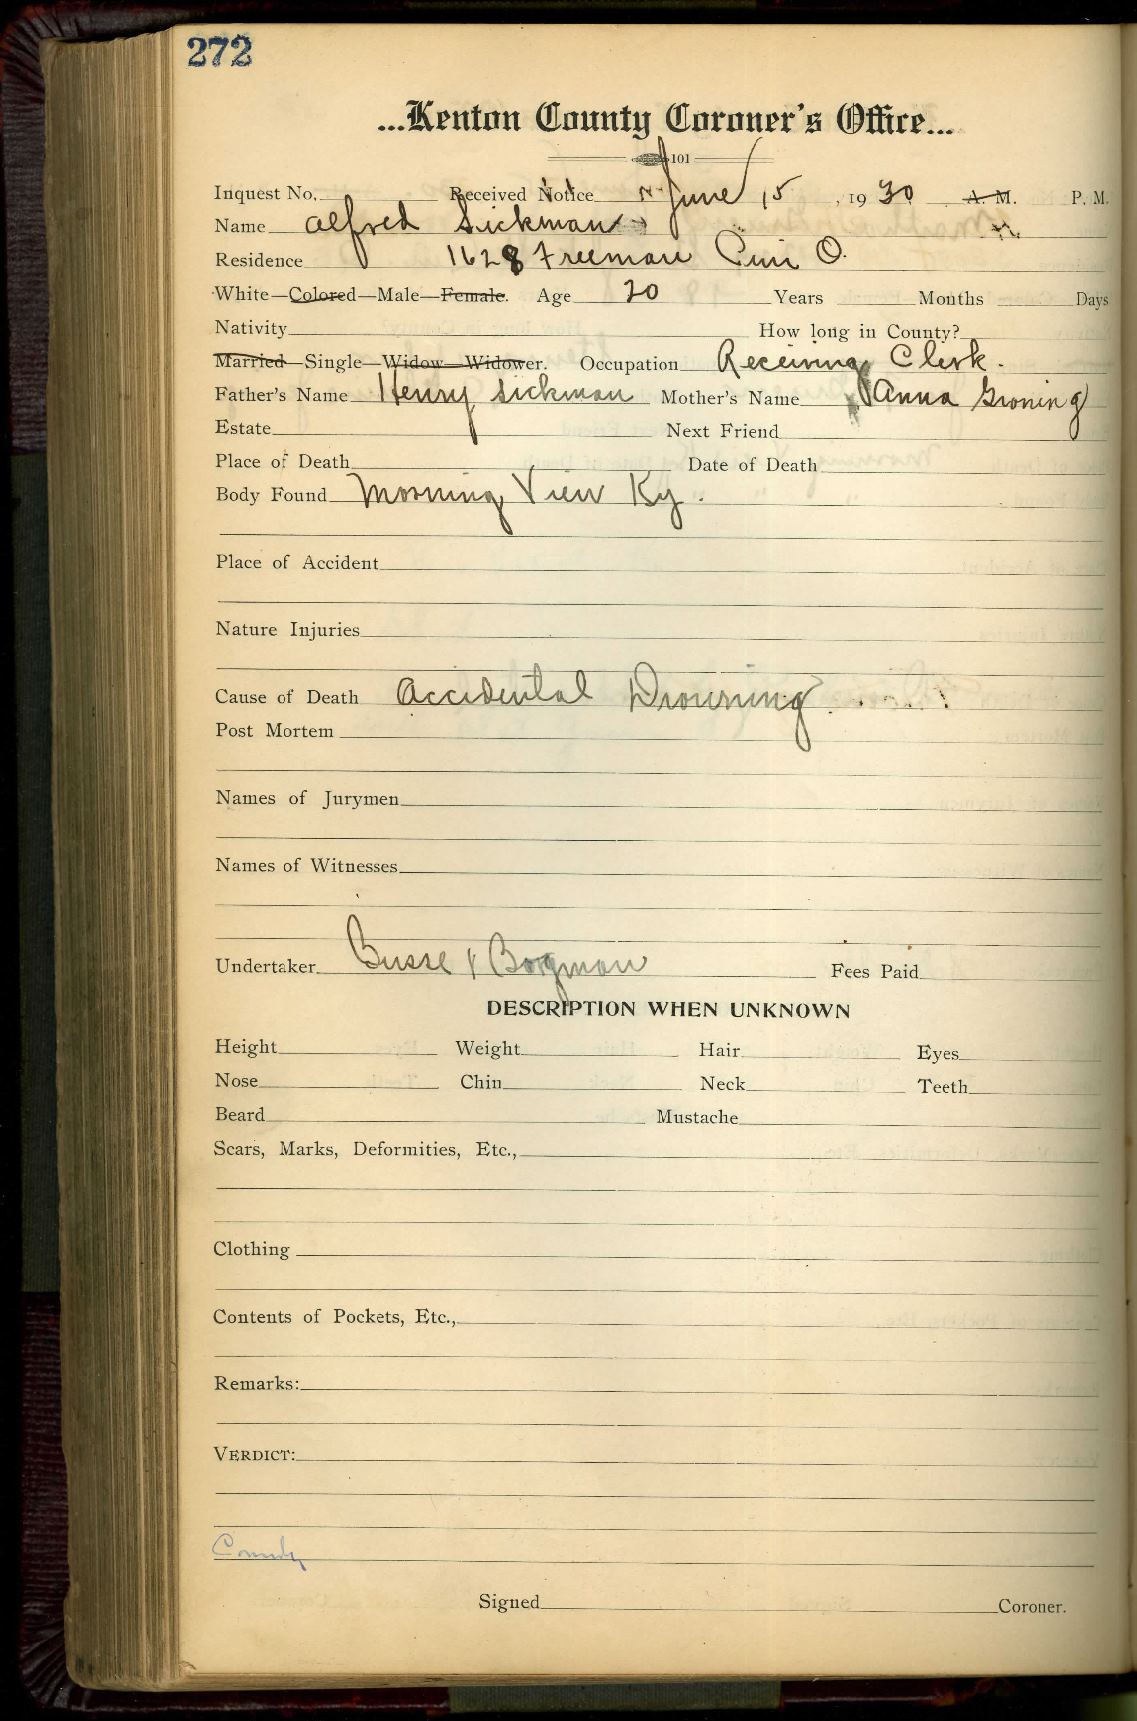 272
...Kenton County Coroner's Office...
101
Inquest No. Received Notice June 15, 1930 A. M. P. M.
Name Alfred Sickman
Residence 1628 Freeman Cin O.
White—Colored—Male—Female. Age 20 Years Months Days
Nativity How long in County?
Married—Single—Widow—Widower. Occupation Receiving Clerk.
Father's Name Henry Sickman Mother's Name Anna Groning
Estate Next Friend
Place of Death Date of Death
Body Found Morning View Ky.
Place of Accident
Nature Injuries
Cause of Death Accidental Drowning.
Post Mortem
Names of Jurymen
Names of Witnesses
Undertaker Busse & Borgman Fees Paid
DESCRIPTION WHEN UNKNOWN
Height Weight Hair Eyes
Nose Chin Neck Teeth
Beard Mustache
Scars, Marks, Deformities, Etc.,
Clothing
Contents of Pockets, Etc.,
Remarks:
VERDICT:
County
Signed Coroner.